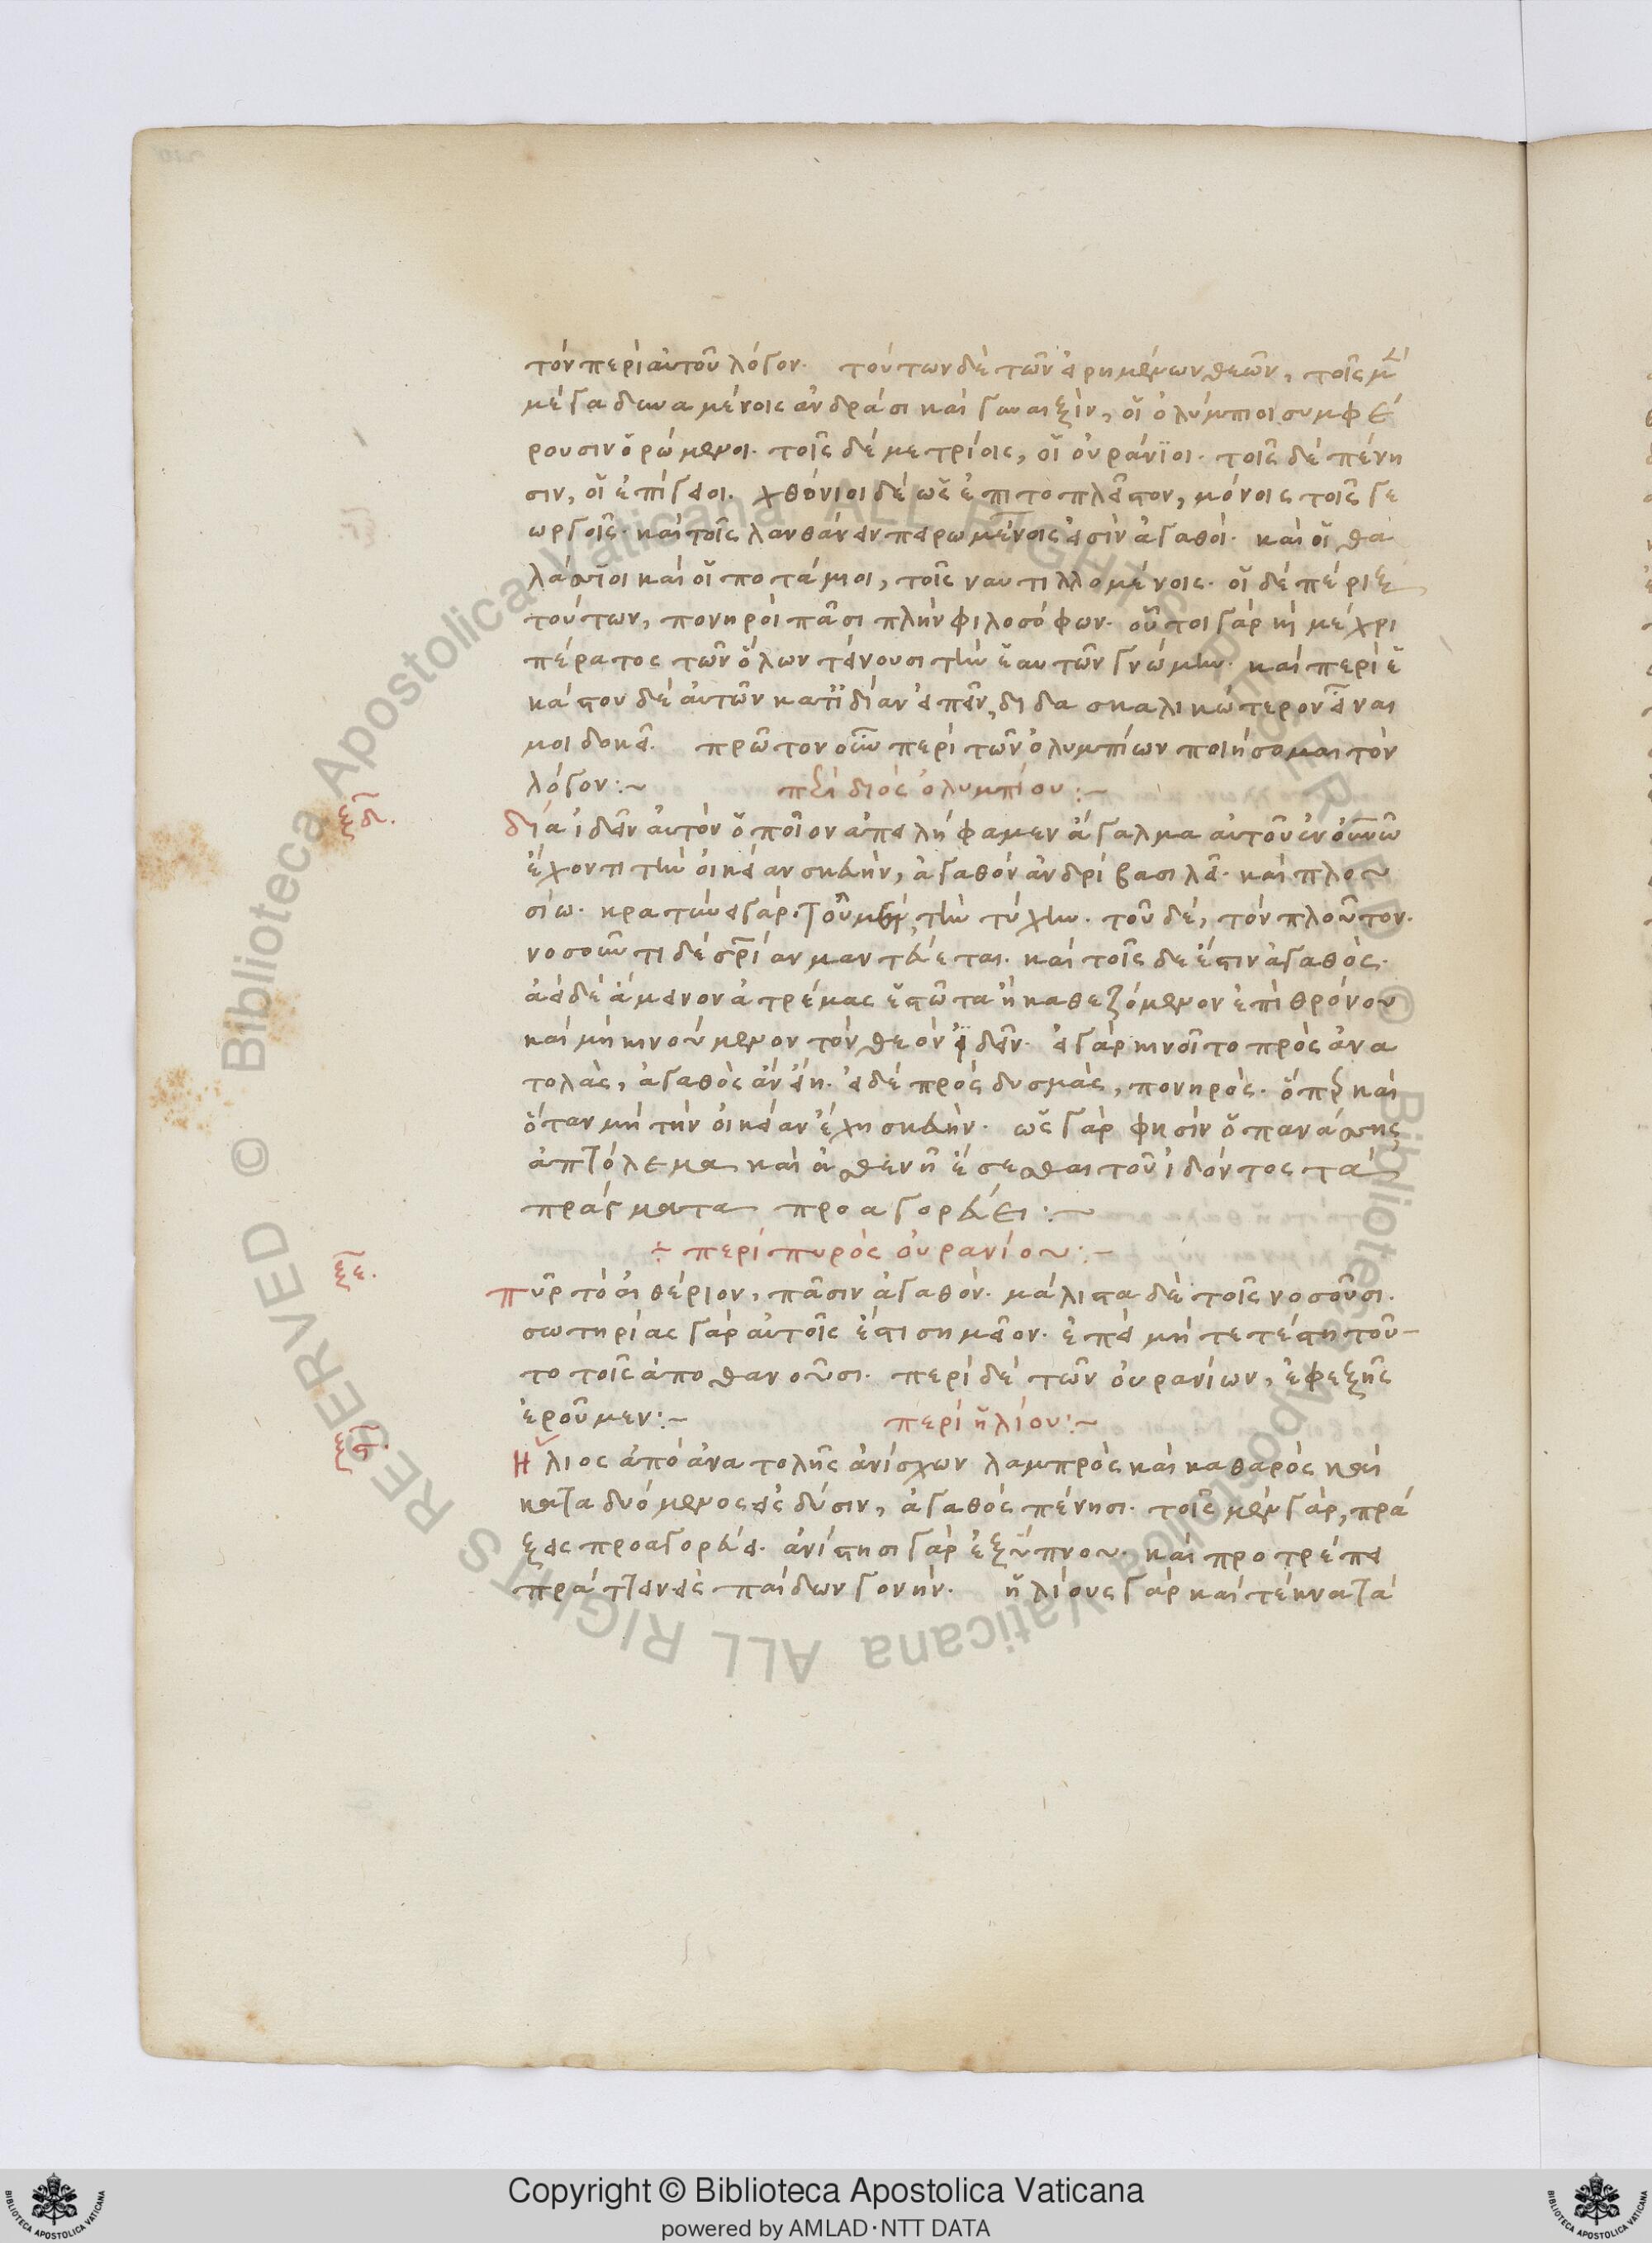 τὸν περὶ αὐτοῦ λόγον. τούτων δὲ τῶν εἰρημένων θεῶν, τοῖς μὲν
μέγα δυναμένοις ἀνδράσι καὶ γυναιξὶν, οἱ ὀλύμπιοι συμφέ
ρουσιν ὁρώμενοι. τοῖς δὲ μετρίοις, οἱ οὐράνϊοι. τοῖς δὲ πένη
σιν, οἱ ἐπίγειοι. χθόνιοι δὲ ὡς ἐπιτοπλεῖστον, μόνοις τοῖς γε
ωργοῖς. καὶ τοῖς λανθάνειν πειρωμένοις εἰσὶν ἀγαθοί. καὶ οἱ θα
λάσσιοι καὶ οἱ ποτάμιοι, τοῖς ναυτιλλομένοις. οἱ δὲ πέριξ
τούτων, πονηροὶ πᾶσι πλὴν φιλοσόφων. οὗτοι γὰρ καὶ μέχρι
πέρατος τῶν ὅλων τείνουσι τὴν ἑαυτῶν γνώμην. καὶ περὶ ἑ
κάστου δὲ αὐτῶν κατϊδίαν εἰπεῖν, διδασκαλικώτερον εἶναι
μοι δοκεῖ. πρῶτον οὖν περὶ τῶν ὀλυμπίων ποιήσομαι τὸν
λόγον:~ περὶ διὸς ὀλυμπίου:~
ξδ.
δία ἰδεῖν αὐτὸν ὁποῖον ἀπειλήφαμεν ἄγαλμα αὐτοῦ ἐν οὐνῶ
ἔχοντι τὴν οἰκείαν σκευὴν, ἀγαθὸν ἀνδρὶ βασιλεῖ. καὶ πλου
σίω. κρατύνει γάρ. τοῦ μὲν, τὴν τύχην. τοῦ δὲ, τὸν πλοῦτον.
νοσοῦντι δὲ σρίαν μαντεύεται. καὶ τοῖς δε ἔστιν ἀγαθός.
ἀεὶ δὲ ἄμεινον ἀτρέμας ἑστῶτα ἢ καθεζόμενον ἐπὶ θρόνου
καὶ μὴ κινούμενον τὸν θεὸν ϊδεῖν. εἰ γὰρ κινοῖτο πρὸς ἀνα
τολὰς, ἀγαθὸς ἂν εἴη. εἰ δὲ πρὸς δυσμὰς, πονηρός. ὅπερ καὶ
ὅταν μὴ τὴν οἰκείαν ἔχη σκευήν. ὡς γάρ φησιν ὁ πανάσσης
ἀπτόλεμα καὶ ἀσθενῆ ἔσεσθαι τοῦ ἰδόντος τὰ
πράγματα προαγορεύει:~
÷ περὶ πυρὸς οὐρανίου:~
ξε.
πῦρ τὸ αἰθέριον, πᾶσιν ἀγαθόν. μάλιστα δὲ τοῖς νοσοῦσι.
σωτηρίας γὰρ αὐτοῖς ἐστι σημεῖον. ἐπεὶ μή τε τέστη τοῦ–
το τοῖς ἀποθανοῦσι. περὶ δὲ τῶν οὐρανίων, ἐφεξῆς
ἐροῦμεν:~ περὶ ἡλίου:~
ξϛ.
Ἥλιος ἀπὸ ἀνατολῆς ἀνίσχων λαμπρὸς καὶ καθαρὸς καὶ
καταδυόμενος εἰς δύσιν, ἀγαθὸς πένησι. τοῖς μὲν γὰρ, πρά
ξεις προαγορεύει. ἀνίστησι γὰρ ἐξ ὕπνου. καὶ προτρέπει
πράττειν εἰς παίδων γονήν. ἡλίους γὰρ καὶ τέκνα τὰ
Copyright © Biblioteca Apostolica Vaticana
powered by AMLAD·NTT DATA